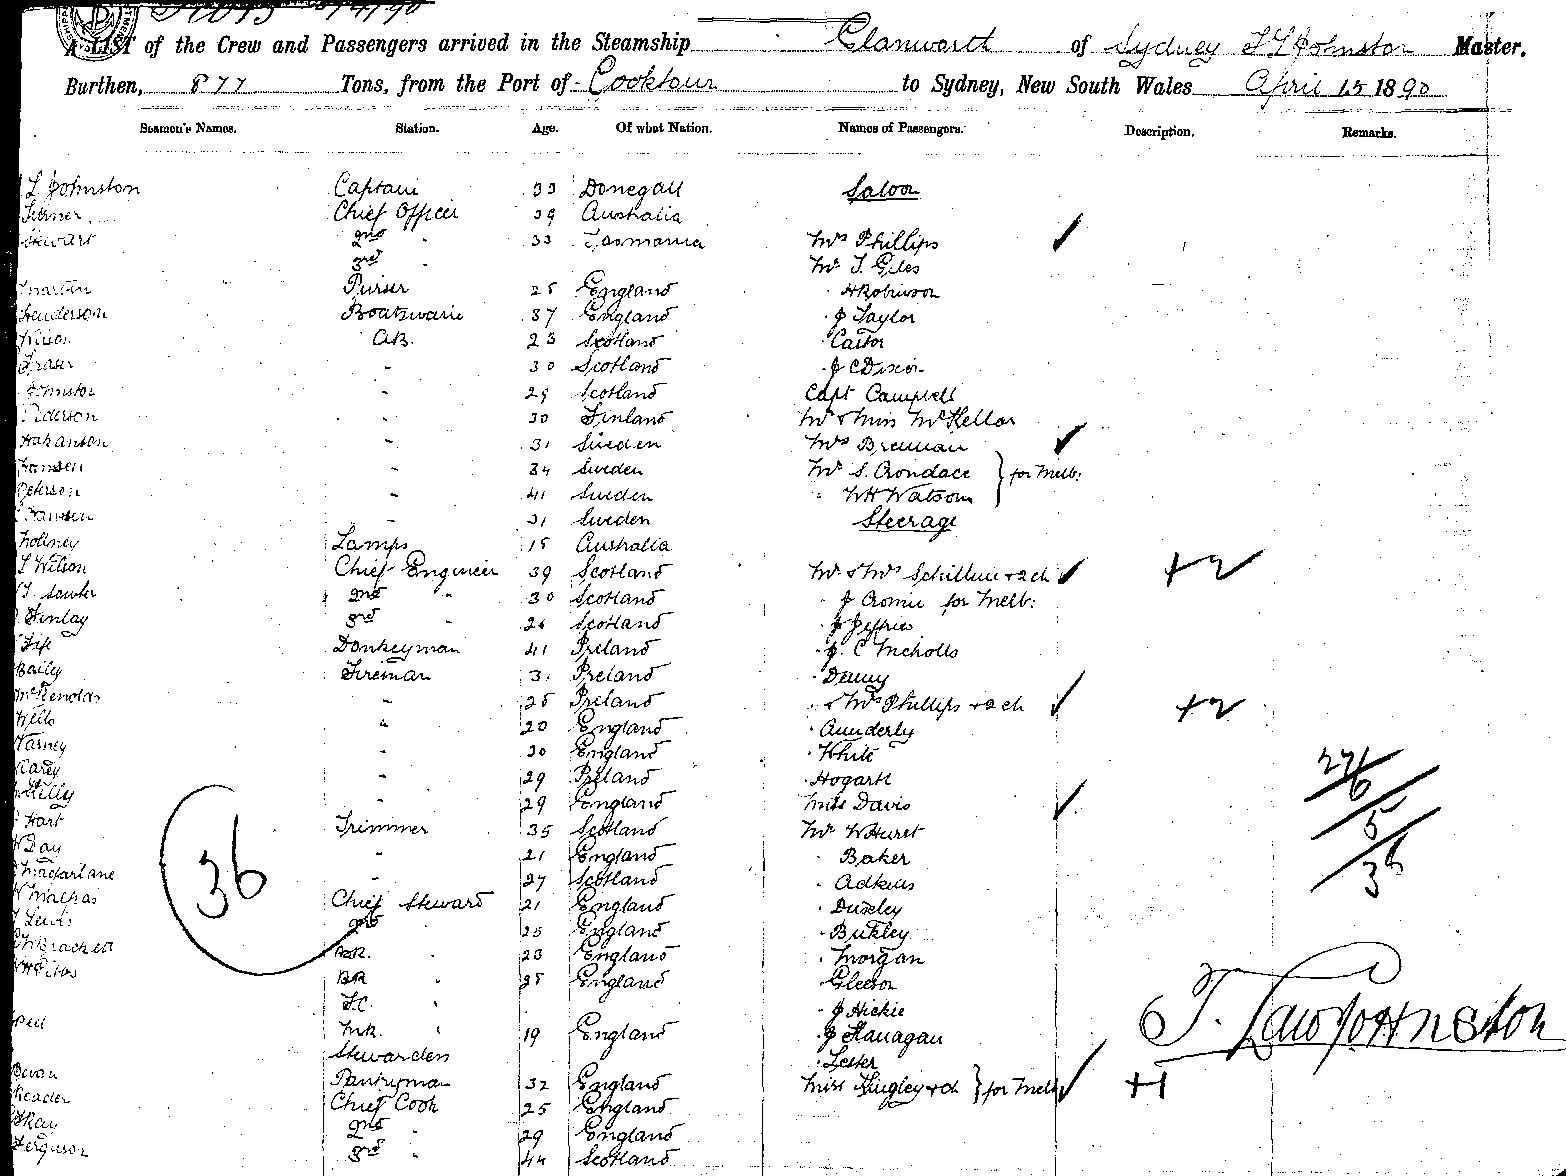 A LIST of the Crew and Passengers arrived in the Steamship Glanworth of Sydney T L Johnston Master,
Burthen, 877 Tons, from the Port of Cooktown to Sydney, New South Wales April 15 1890
Seamen's Names. Station. Age. Of what Nation. Names of Passengers. Description. Remarks.
L Johnston Captain 33 Donegall Saloon
Turner Chief Officer 39 Australia
Stewart 2nd " 33 Tasmania Mrs Phillips
3rd " Mr T. Giles
Martin Purser 25 England " H Robinson
Henderson Boatswain 37 England " J Taylor
A.B. 23 Scotland " Castor
Fraser " 30 Scotland " J C Dixon
Johnston " 29 Scotland Capt Campbell
Pederson " 30 Finland Mr & Miss McKellar
Hakanson " 31 Sweden Mrs Brennan
Hansen " 34 Sweden Mr S. Crondace } for Melb:
Peterson " 41 Sweden " W H Watson
Hansen " 31 Sweden Steerage
Lamps 15 Australia
L Wilson Chief Engineer 39 Scotland Mr & Mrs Schilling + 2 ch +2
2nd " 30 Scotland " J Cromie for Melb:
Finlay 3rd " 26 Scotland " J Jeffries
Fife Donkeyman 41 Ireland " J. C Nicholls
Bailey Fireman 31 Ireland " Denny
" 25 Ireland " & Mrs Phillips + 2 ch +2
Wells " 20 England " Aunderly
Varney " 30 England " White
Carey " 29 Ireland " Hogarth
Kelly " 29 England Miss Davis
Hart Trimmer 35 Scotland Mr W Hurst
Day " 21 England " Baker
Macfarlane " 27 Scotland " Adkins
Malpas Chief Steward 21 England " Duxley
Lewis 2nd 25 England " Bukley
Brackett 23 England " Morgan
BR " 35 England " Gleeson
F.C. " " J Hickie
M.R. " 19 England " J Flanagan
Stewardess " Lester
Bevan Pantryman 32 England Miss Kingley + ch } for Melb +1
Reader Chief Cook 25 England
2nd " 29 England
Ferguson 3rd " 44 Scotland
36
27/6
5
36
T. Law Johnston